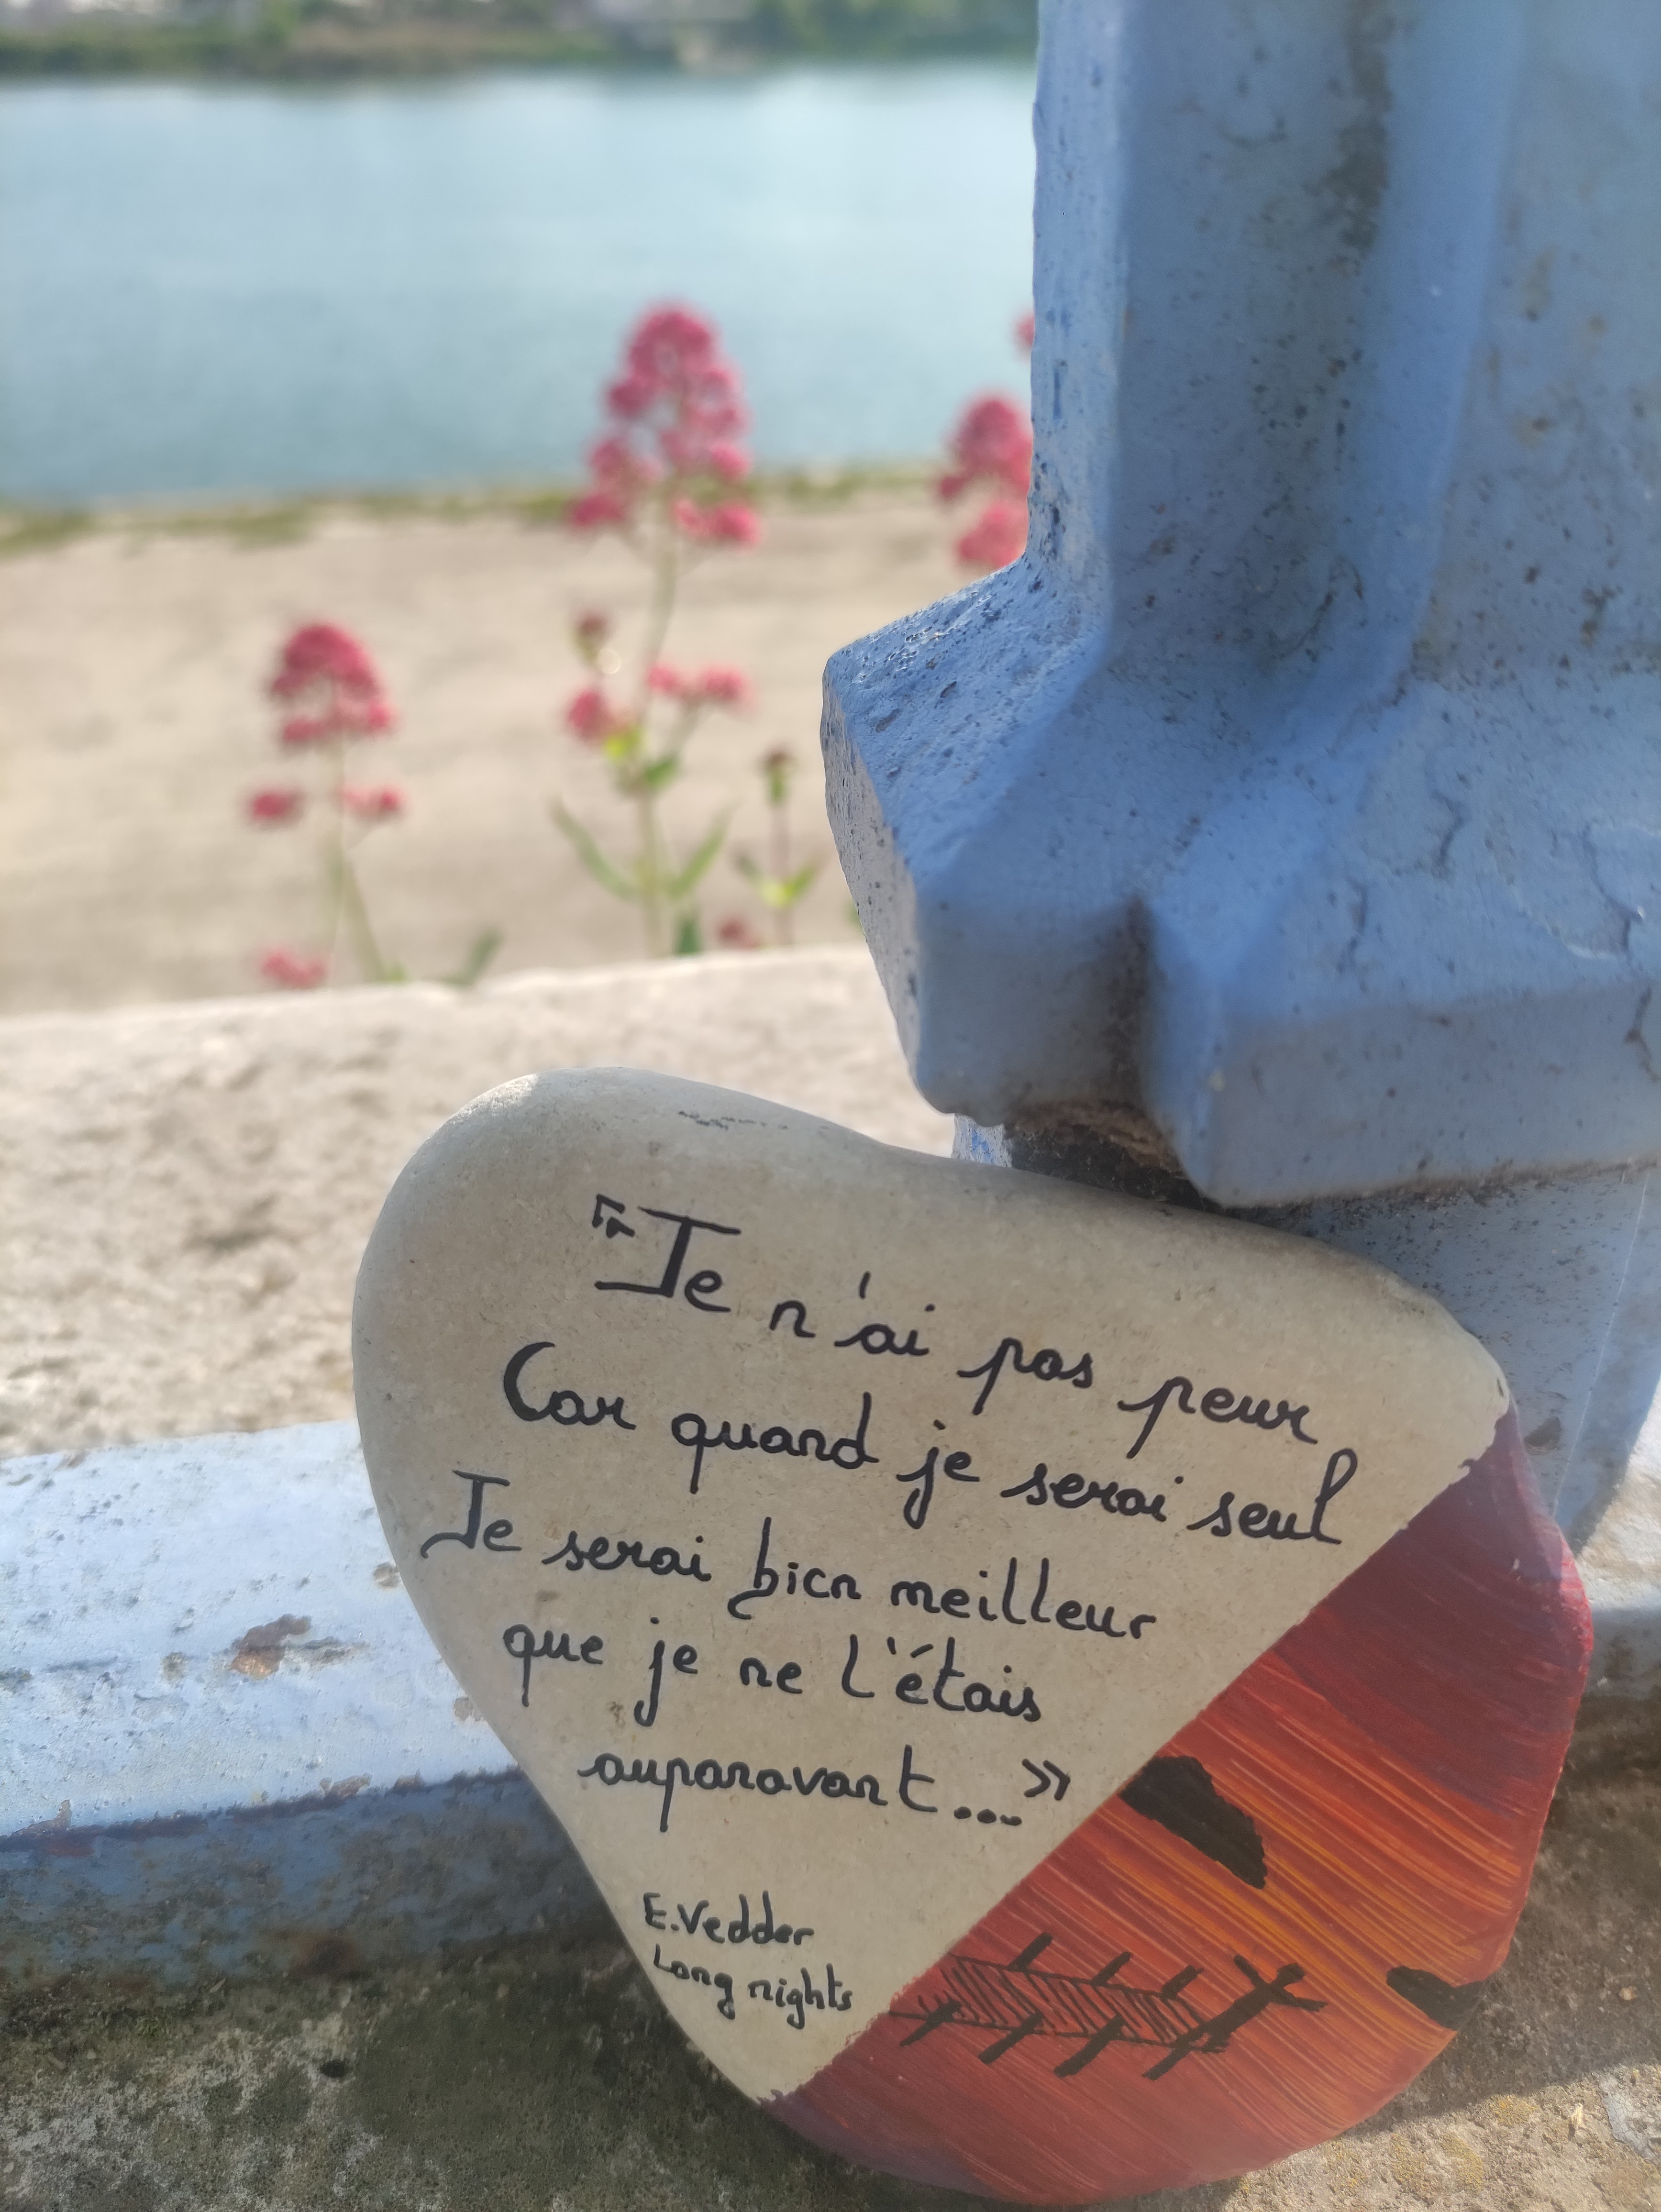 "Je n'ai pas peur
Car quand je serai seul
Je serai bien meilleur
que je ne l'étais
auparavant...»
E.Vedder
Long nights